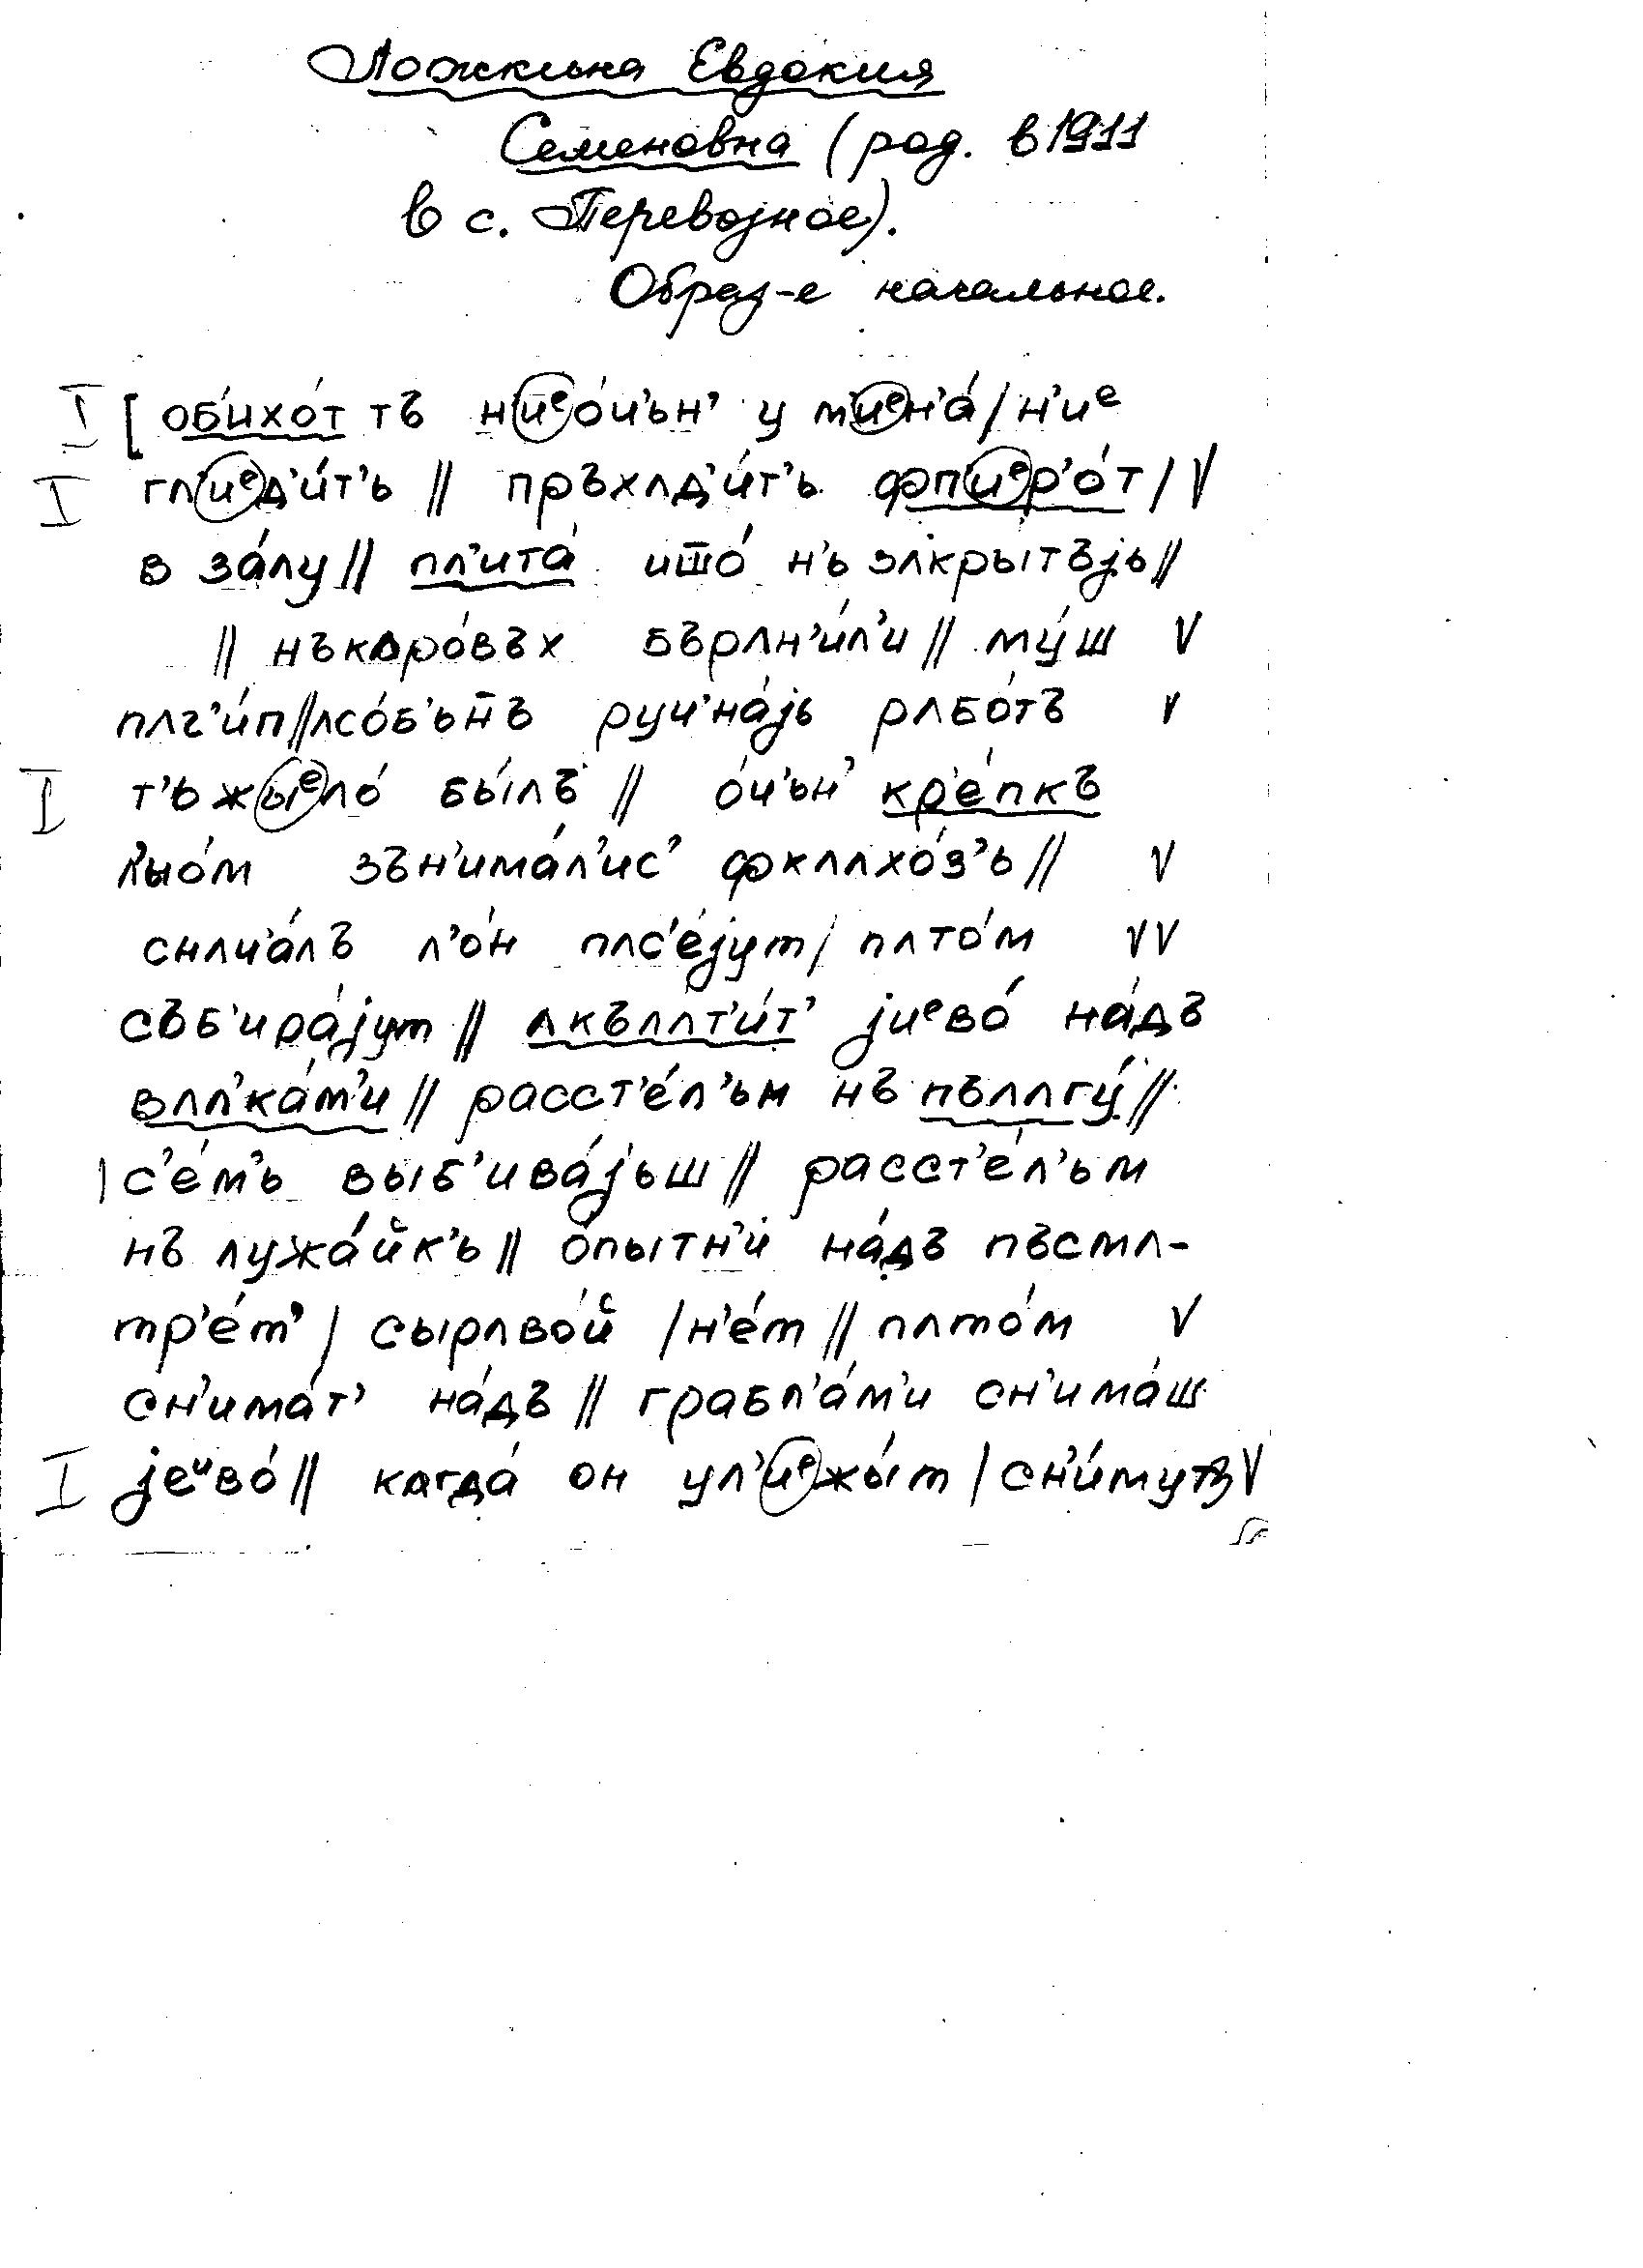 Ложкина Евдокия
Семеновна (род. в 1911
в с. Перевозное).
Образ-е начальное.
I [ об'ихо́т тъ н'иᵉо́ч'ьн' у м'иᵉн'а́ / н'иᵉ
I гл'иᵉд'и́т'ь // пръхʌд'и́т'ь фп'иᵉр'о́т / V
в за́лу // пл'ита́ ишто́ н'ь зʌкрытъjь //
// нъкʌро́въх бърʌн'и́л'и // му́ш V
пʌг'и́п // ʌсо́б'ьн̄ъ руч'на́jь рʌбо́тъ V
I т'ьжыᵉло́ бы́лъ // о́ч'ьн' кр'е́пкъ
л'ьно́м зън'има́л'ис' фкʌлхо́з'ь // V
снʌч'а́лъ л'о́н пʌс'е́jут / пʌто́м VV
съб'ира́jут // ʌкълʌт'и́т' jиᵉво́ на́дъ
вʌл'ка́м'и // расст'е́л'ьм нъ пълʌгу́ //
| с'е́м'ь выб'ива́jьш // расст'е́л'ьм
нъ лужа́йк'ь // о́пытн'й на́дъ пъсмʌ-
тр'е́т' / сырʌво́й / н'е́т // пʌто́м V
сн'има́т' на́дъ // грабл'а́м'и сн'има́ш
I jеⁱво́ // кʌгда́ он ул'иᵉжы́т / сн'и́мут V